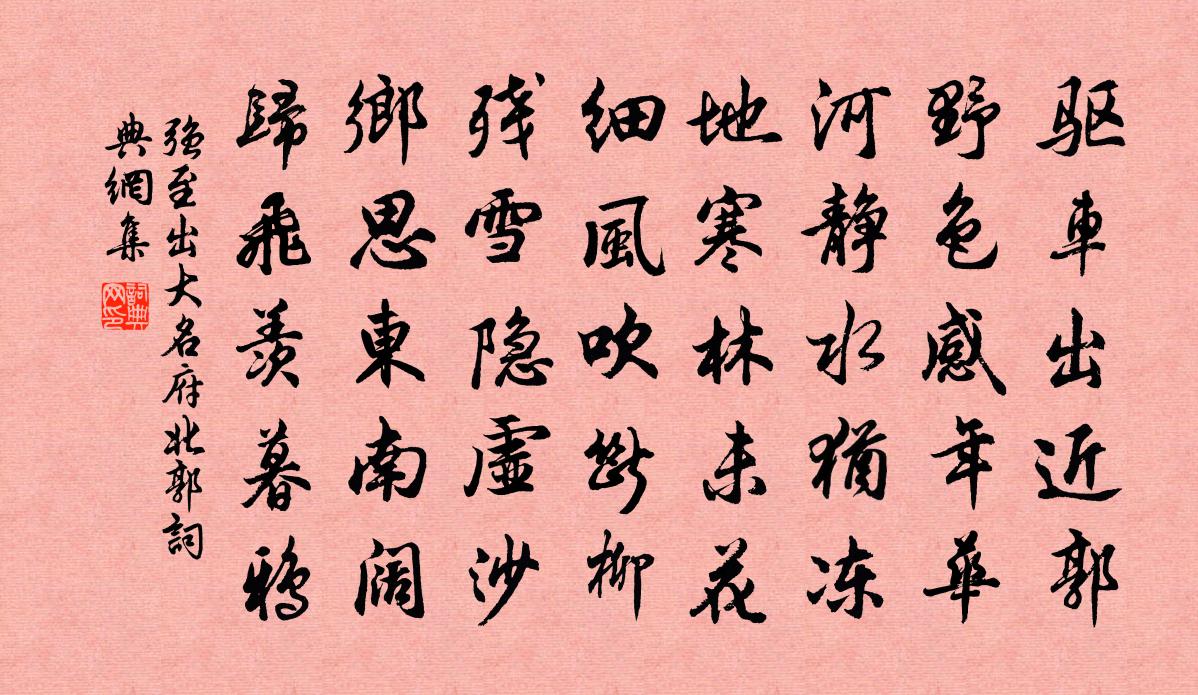 驱車出近郭
野色感年華
河静水猶冻
地寒林未花
细風吹斷柳
残雪隐虚沙
鄉思東南阔
歸飛羨暮鴉
強至出大名府北郭詞
典網集
詞典
网印